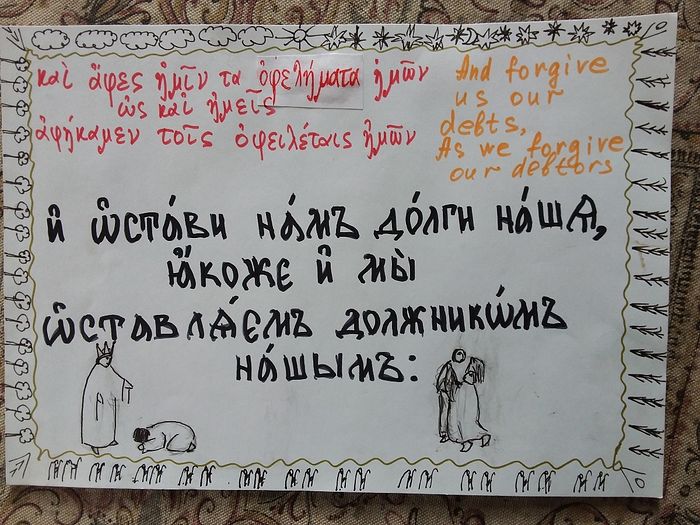 καὶ ἄφες ἡμῖν τα ὀφελήματα ἡμῶν
ὡς καὶ ἡμεῖς
ἀφήκαμεν τοῖς ὀφειλέταις ἡμῶν
And forgive
us our
debts,
As we forgive
our debtors
и҆ ѡ҆ста́ви на́мъ до́лги на́шѧ,
ꙗ҆́коже и҆ мы̀
ѡ҆ставлѧ́емъ должникѡ́мъ
на́шымъ: